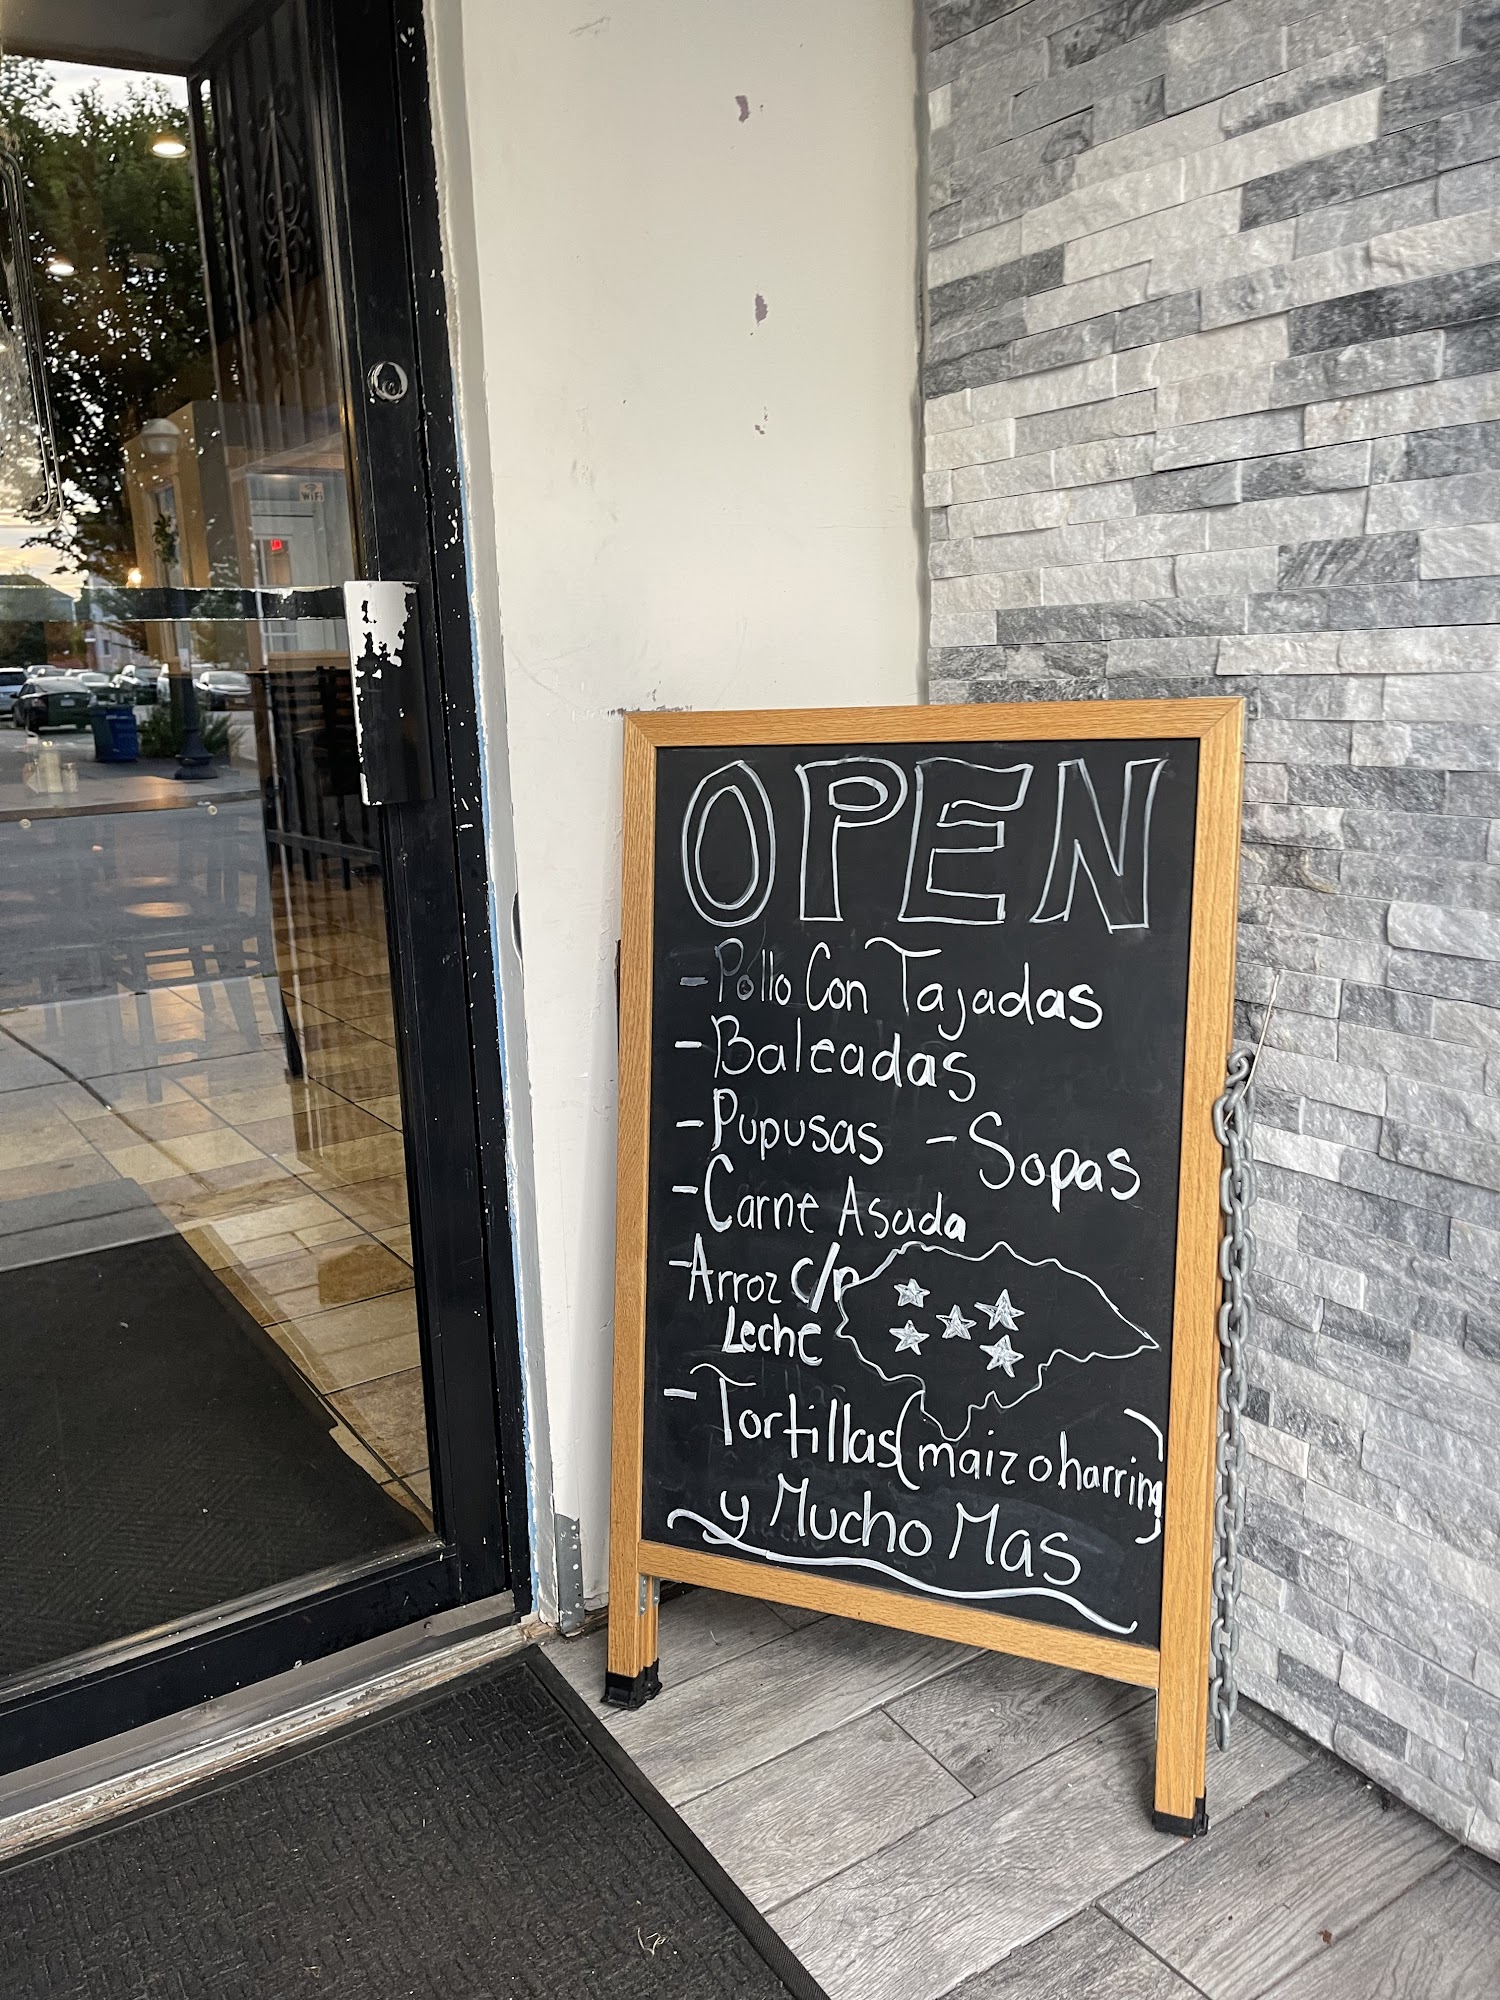 WiFi
OPEN
- Pollo Con Tajadas
- Baleadas
- Pupusas - Sopas
- Carne Asada
- Arroz c/n
Leche
- Tortillas (maiz o harrina)
y Mucho Mas